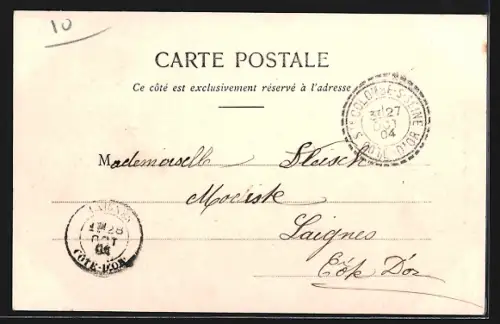 10
CARTE POSTALE
Ce côté est exclusivement réservé à l'adresse
STE COLOMBE-S-SEINE
27
04
Mademoiselle
Modiste
Laignes
Côte D'or
LAIGNES
28
OCT
04
CÔTE-D'OR